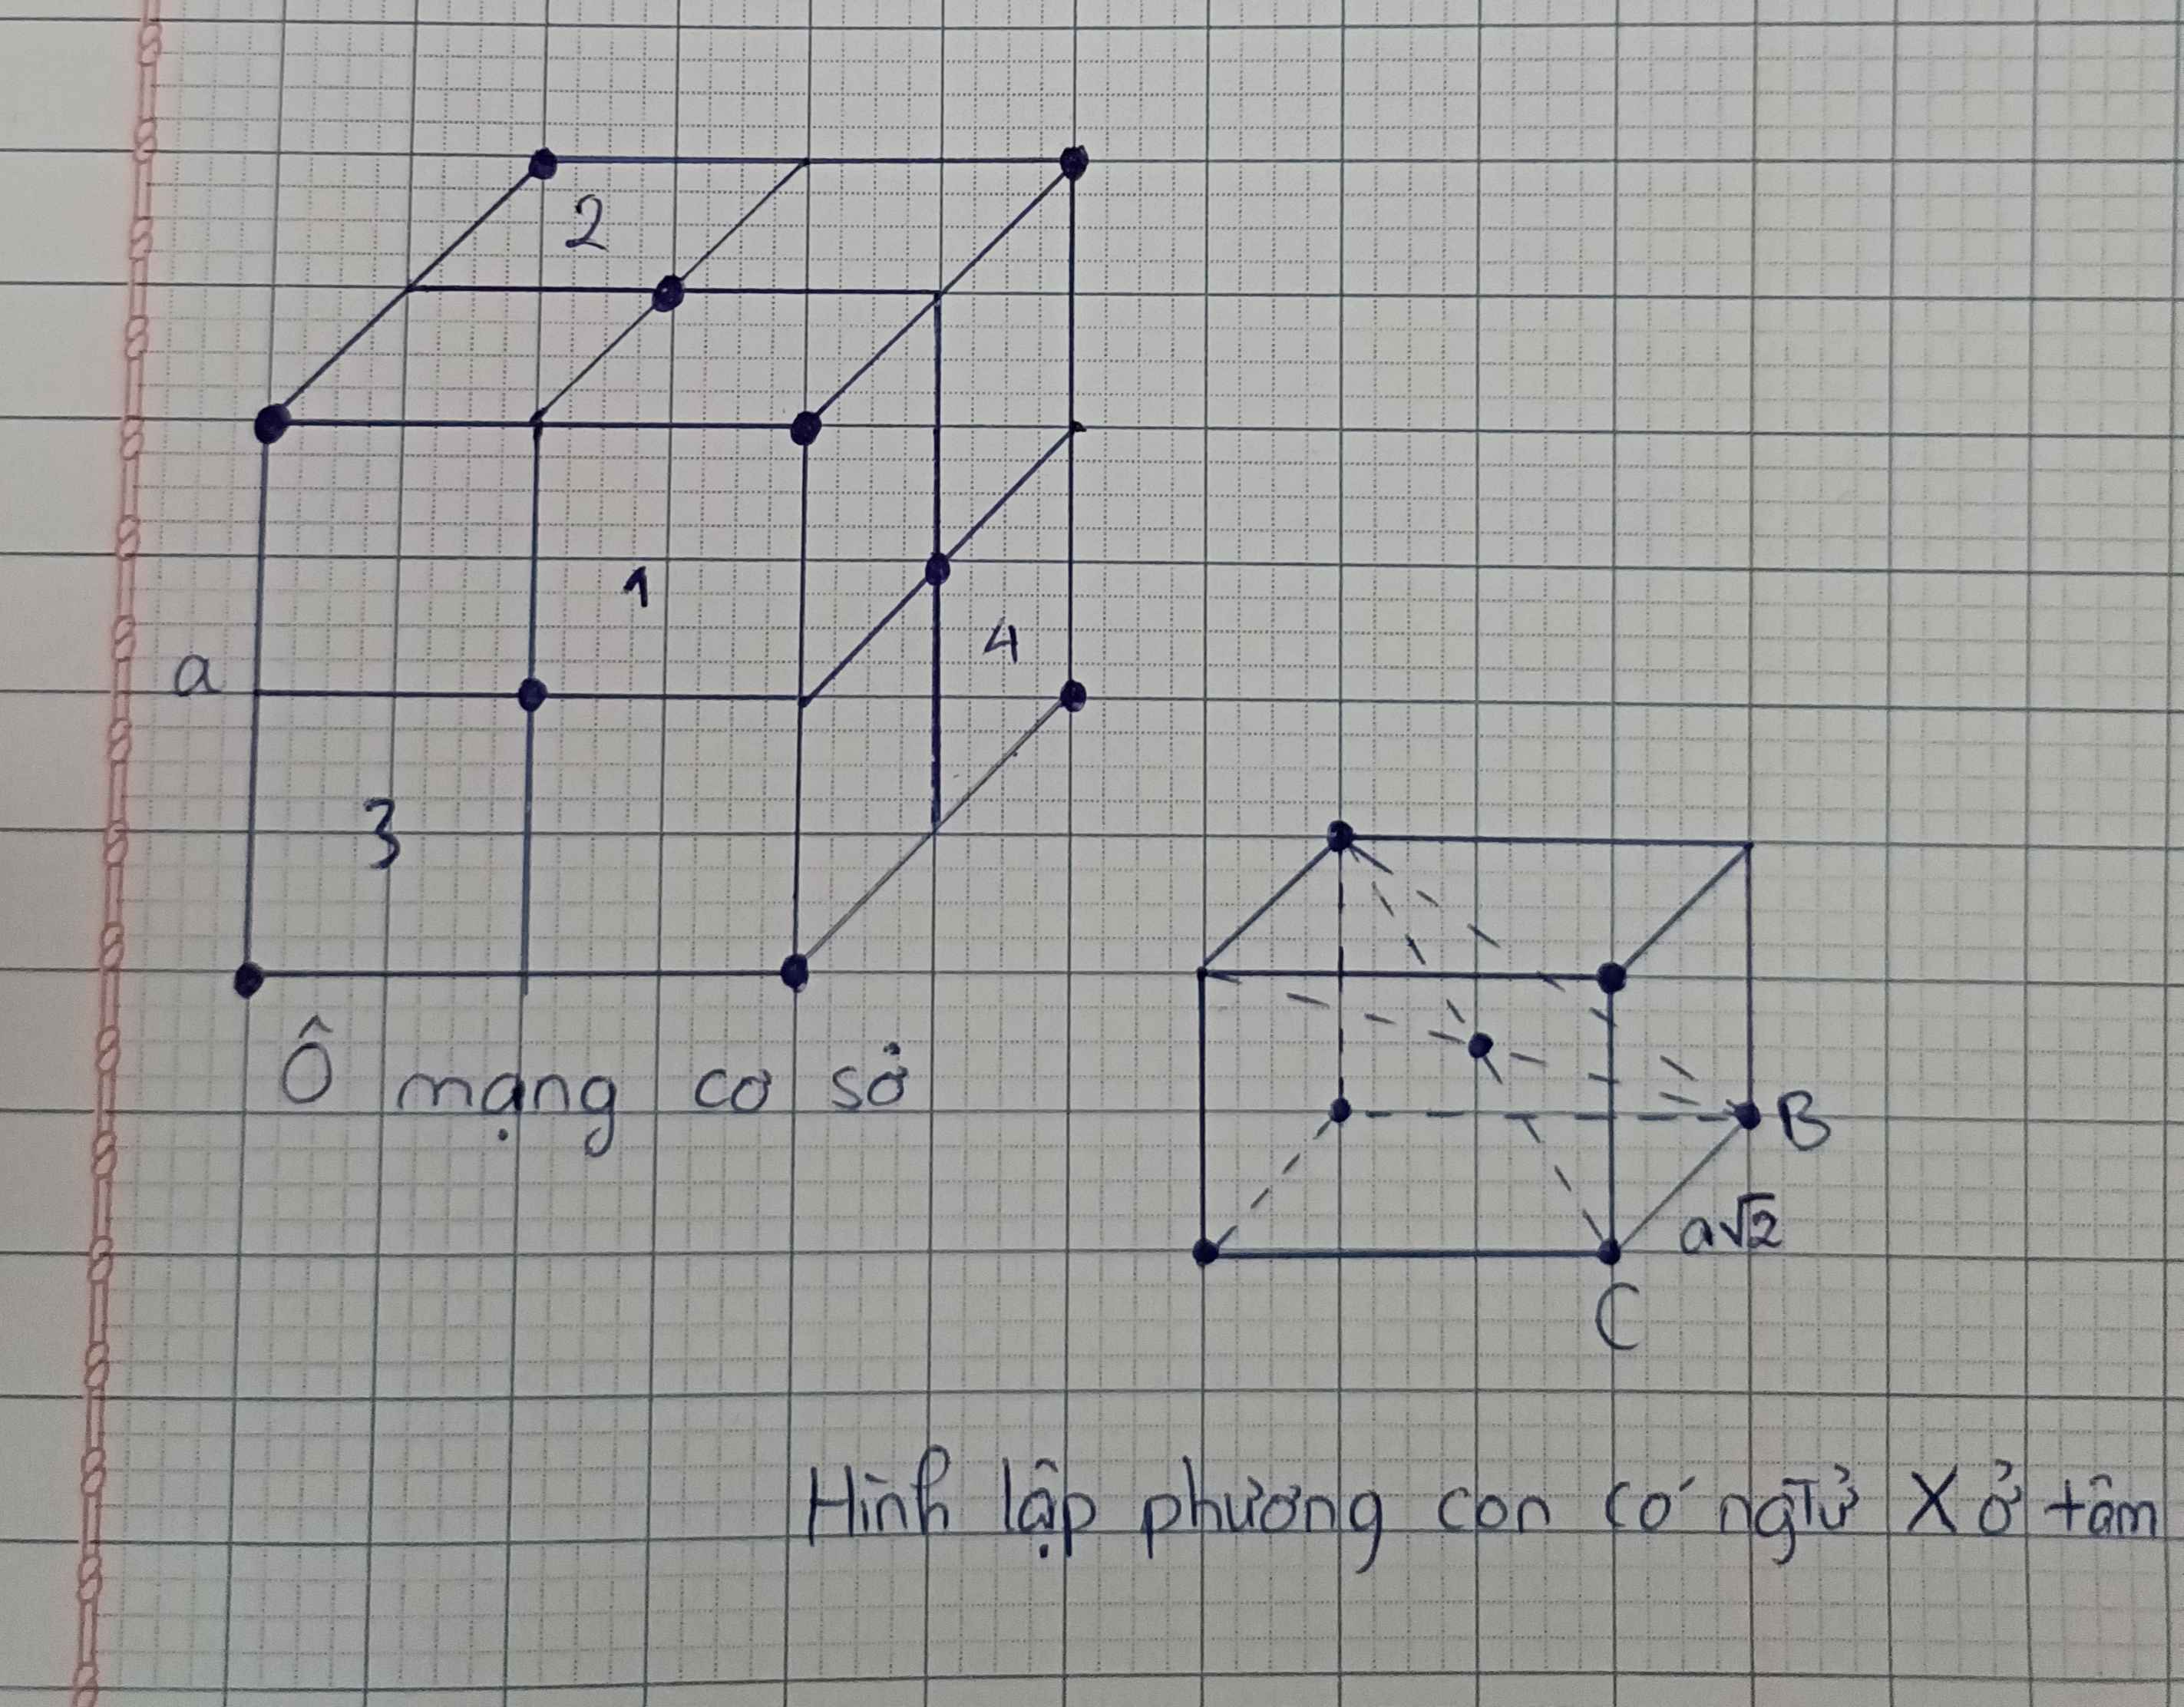 2
1
a
4
3
Ô mạng cơ sở
B
a√2
C
Hình lập phương con có ngtử X ở tâm